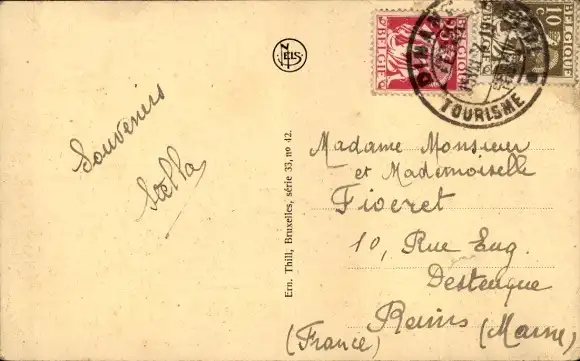 Souvenirs
Stella
NELS
Ern. Thill, Bruxelles, série 33, nº 42.
BELGIQUE
BELGIE
BELGIQUE
BELGIE
10 c
DINANT
TOURISME
Madame Monsieur
et Mademoiselle
Fioeret
10, Rue Eug.
Desteuque
Reims (Marne)
(France)